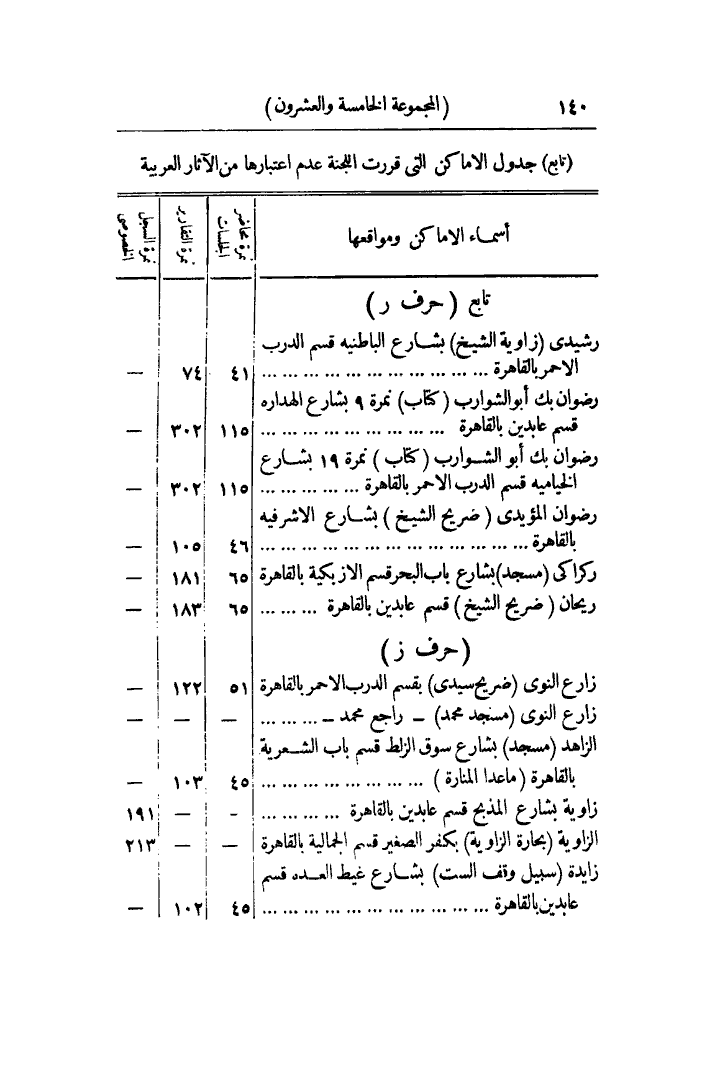 ١٤٠ (المجموعة الخامسة والعشرون)
(تابع) جدول الاماكن التى قررت اللجنة عدم اعتبارها من الآثار العربية
أسماء الاماكن ومواقعها نمرة محاضر الجلسات نمرة التقارير نمرة السجل الخصوصى
تابع (حرف ر)
رشيدى (زاوية الشيخ) بشارع الباطنيه قسم الدرب
الاحمر بالقاهرة ... ... ... ... ... ... ... ... ... ... ... ٤١ ٧٤ —
رضوان بك أبوالشوارب (كتاب) نمرة ٩ بشارع الهداره
قسم عابدين بالقاهرة ... ... ... ... ... ... ... ... ... ١١٥ ٣٠٢ —
رضوان بك أبو الشوارب (كتاب) نمرة ١٩ بشارع
الخياميه قسم الدرب الاحمر بالقاهرة ... ... ... ... ... ١١٥ ٣٠٢ —
رضوان المؤيدى (ضريح الشيخ) بشارع الاشرفيه
بالقاهرة ... ... ... ... ... ... ... ... ... ... ... ... ... ٤٦ ١٠٥ —
ركراكى (مسجد) بشارع باب البحر قسم الازبكية بالقاهرة ٦٥ ١٨١ —
ريحان (ضريح الشيخ) قسم عابدين بالقاهرة ... ... ... ٦٥ ١٨٣ —
(حرف ز)
زارع النوى (ضريح سيدى) بقسم الدرب الاحمر بالقاهرة ٥١ ١٢٢ —
زارع النوى (مسجد محمد) — راجع محمد — ... ... ... — — —
الزاهد (مسجد) بشارع سوق الزلط قسم باب الشعرية
بالقاهرة (ماعدا المنارة) ... ... ... ... ... ... ... ... ٤٥ ١٠٣ —
زاوية بشارع المذبح قسم عابدين بالقاهرة ... ... ... ... - — ١٩١
الزاوية (بحارة الزاوية) بكفر الصغير قسم الجمالية بالقاهرة — — ٢١٣
زايدة (سبيل وقف الست) بشارع غيط العده قسم
عابدين بالقاهرة ... ... ... ... ... ... ... ... ... ... ... ٤٥ ١٠٢ —